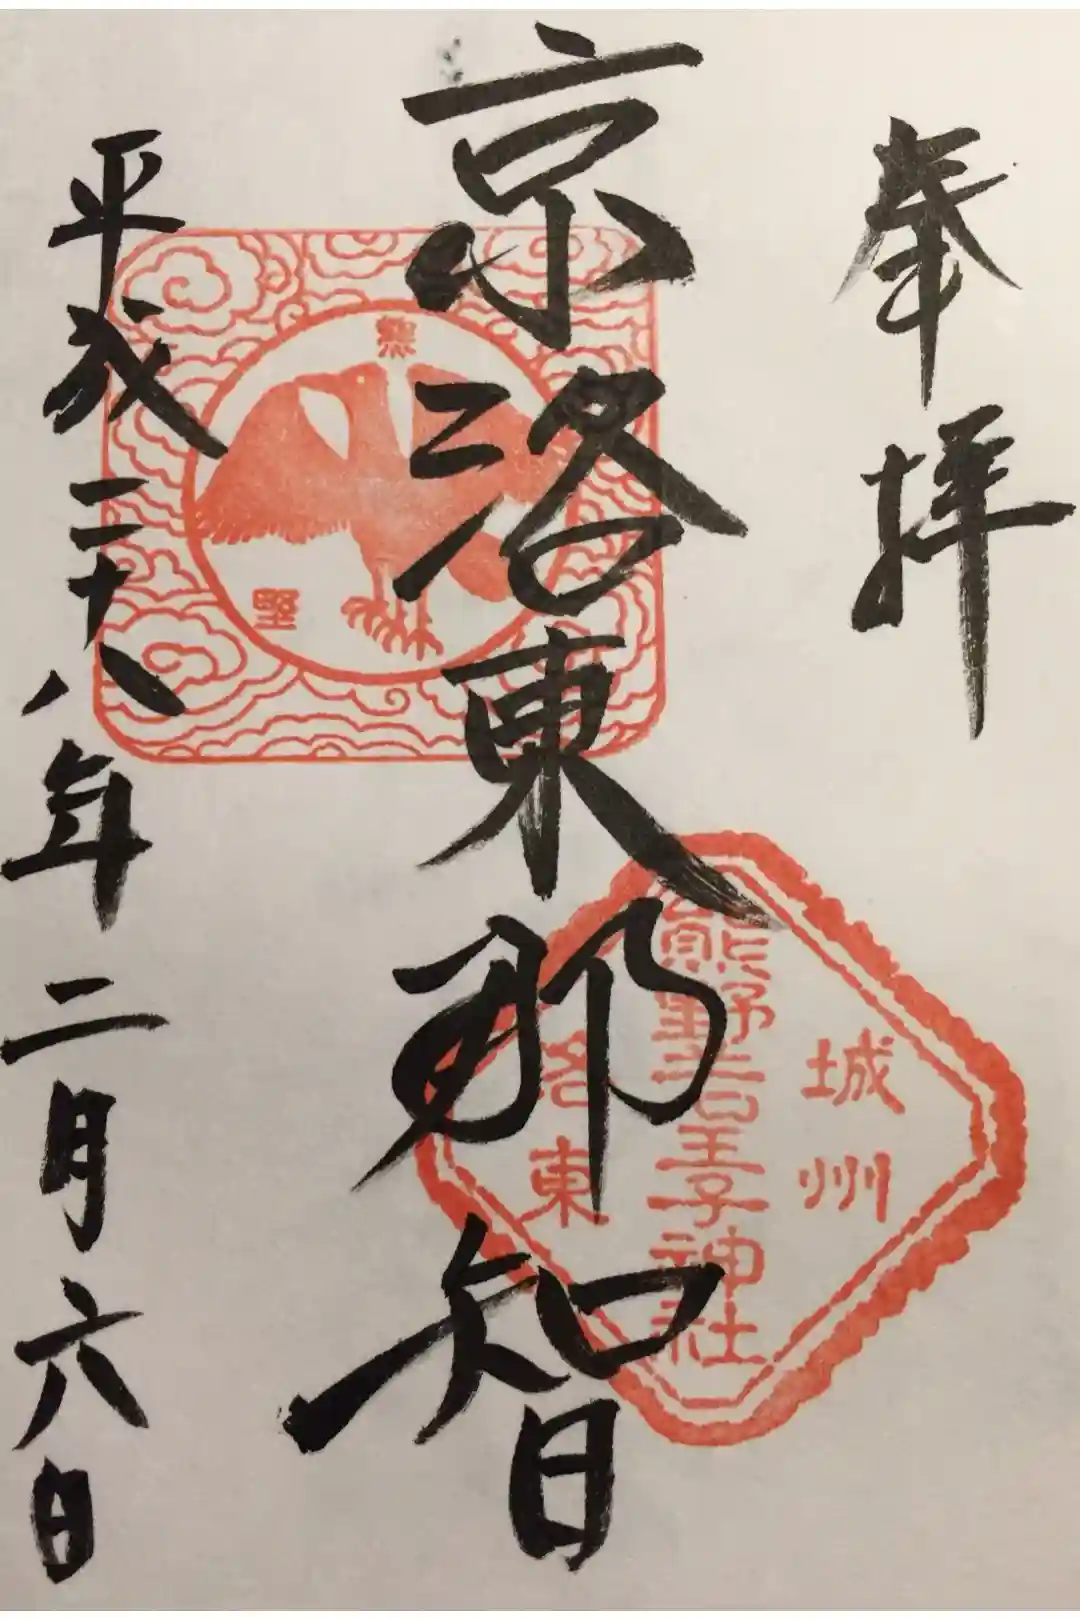 奉拝
京洛東那智
平成二十八年二月六日
熊
野
城州
熊野若王子神社
洛東